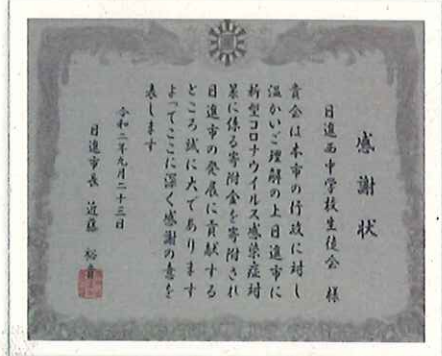 感謝状
日進西中学校生徒会 様
貴会は本市の行政に対し
温かいご理解の上日進市に
新型コロナウイルス感染症対
策に係る寄附金を寄附され
日進市の発展に貢献する
ところ誠に大であります
よってここに深く感謝の意を
表します
令和二年九月二十三日
日進市長 近藤 裕貴